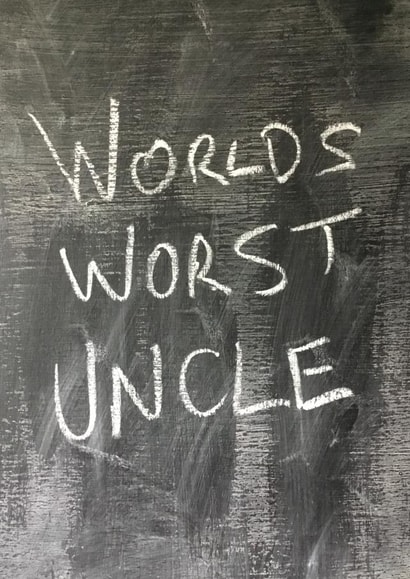 WORLDS
WORST
UNCLE